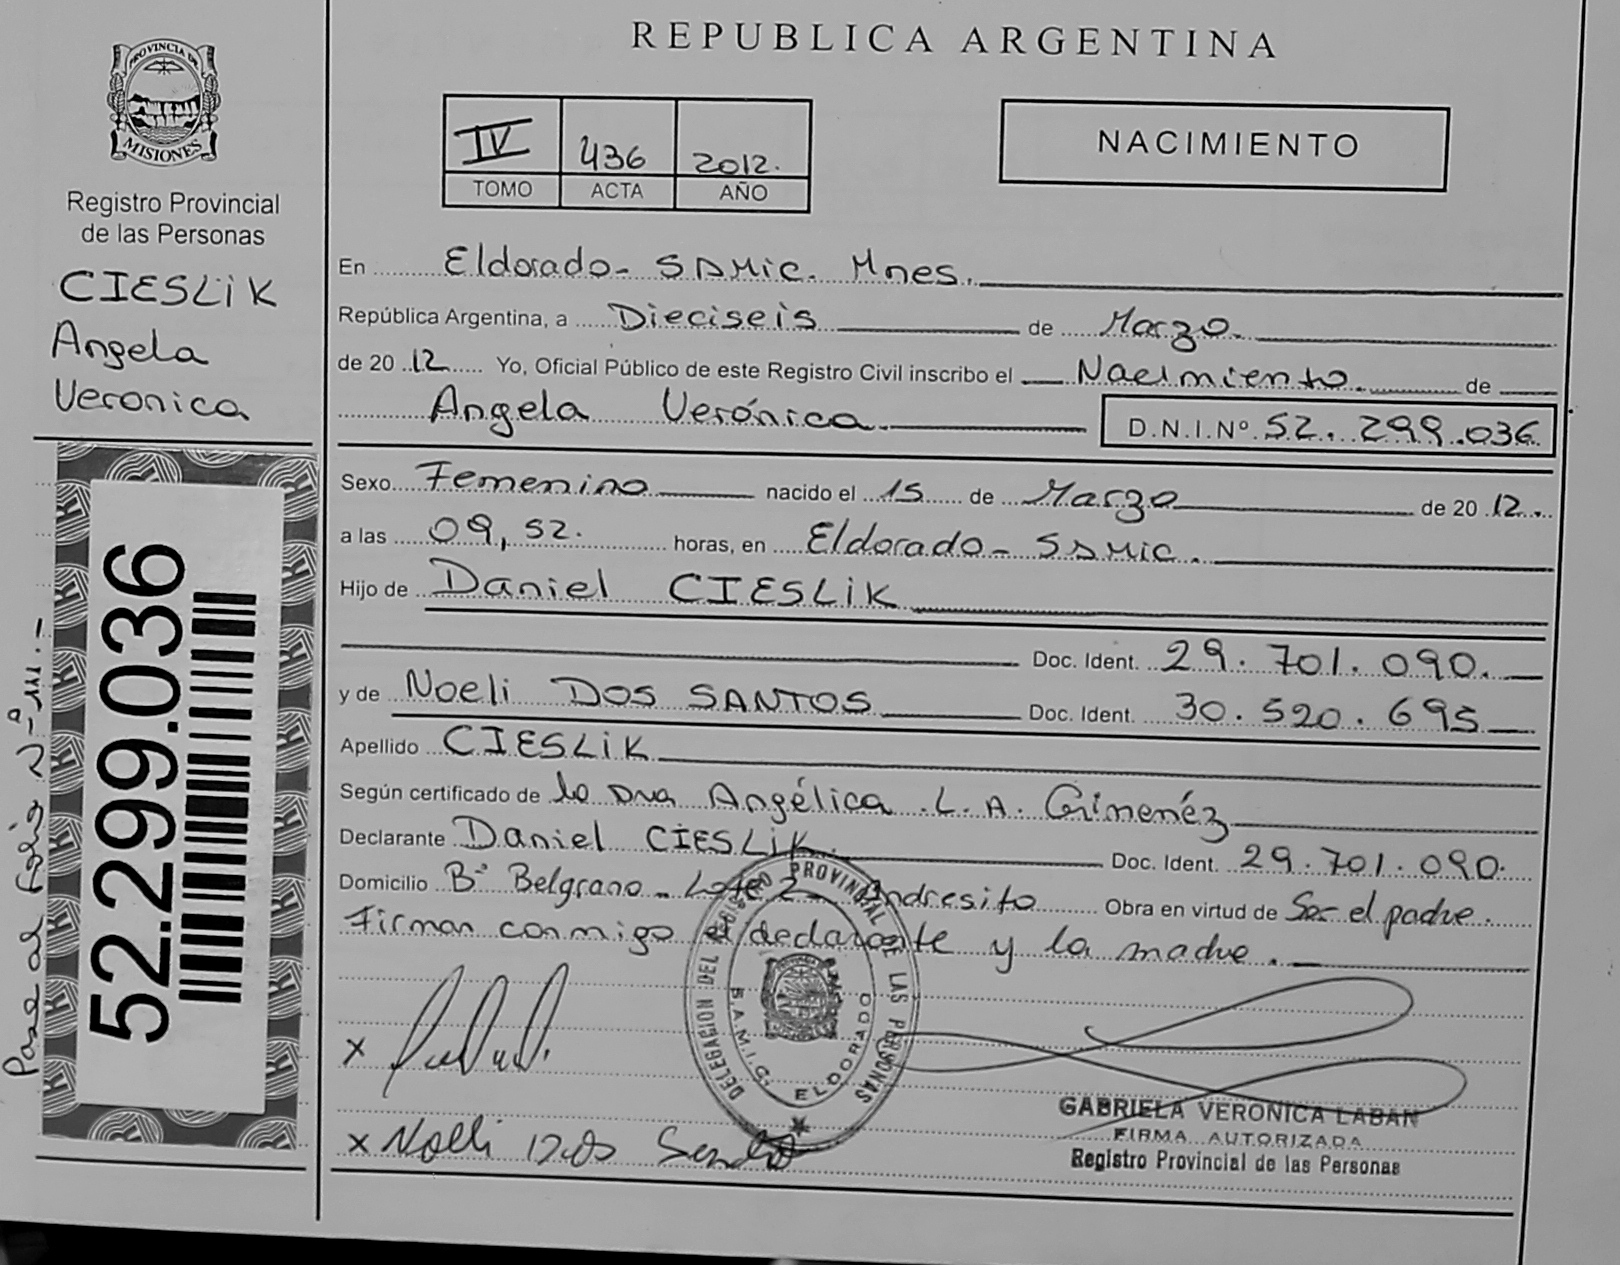 REPUBLICA ARGENTINA
PROVINCIA DE
MISIONES
Registro Provincial
de las Personas
CIESLIK
Angela
Veronica
52.299.036
Pase al Folio Nº 111.-
IV 436 2012.
TOMO ACTA AÑO
NACIMIENTO
En Eldorado- SAMic. Mnes.
República Argentina, a Dieciseis de Marzo.
de 20 12 Yo, Oficial Público de este Registro Civil inscribo el Nacimiento. de
Angela Verónica. D.N.I.Nº 52. 299.036
Sexo Femenino nacido el 15 de Marzo de 20 12.
a las 09,52. horas, en Eldorado- SAMic.
Hijo de Daniel CIESLIK
Doc. Ident. 29.701.090.
y de Noeli DOS SANTOS Doc. Ident. 30.520.695
Apellido CIESLIK
Según certificado de la Dra Angélica L. A. Gimenéz
Declarante Daniel CIESLIK Doc. Ident. 29.701.090.
Domicilio Bº Belgrano - Lote 2 - Andresito Obra en virtud de Ser el padre.
Firman conmigo el declarante y la madre.
DELEGACION DEL REGISTRO PROVINCIAL DE LAS PERSONAS
S.A.M.I.C. ELDORADO
x
x Noelli Dos Santo
GABRIELA VERONICA LABAN
FIRMA AUTORIZADA
Registro Provincial de las Personas